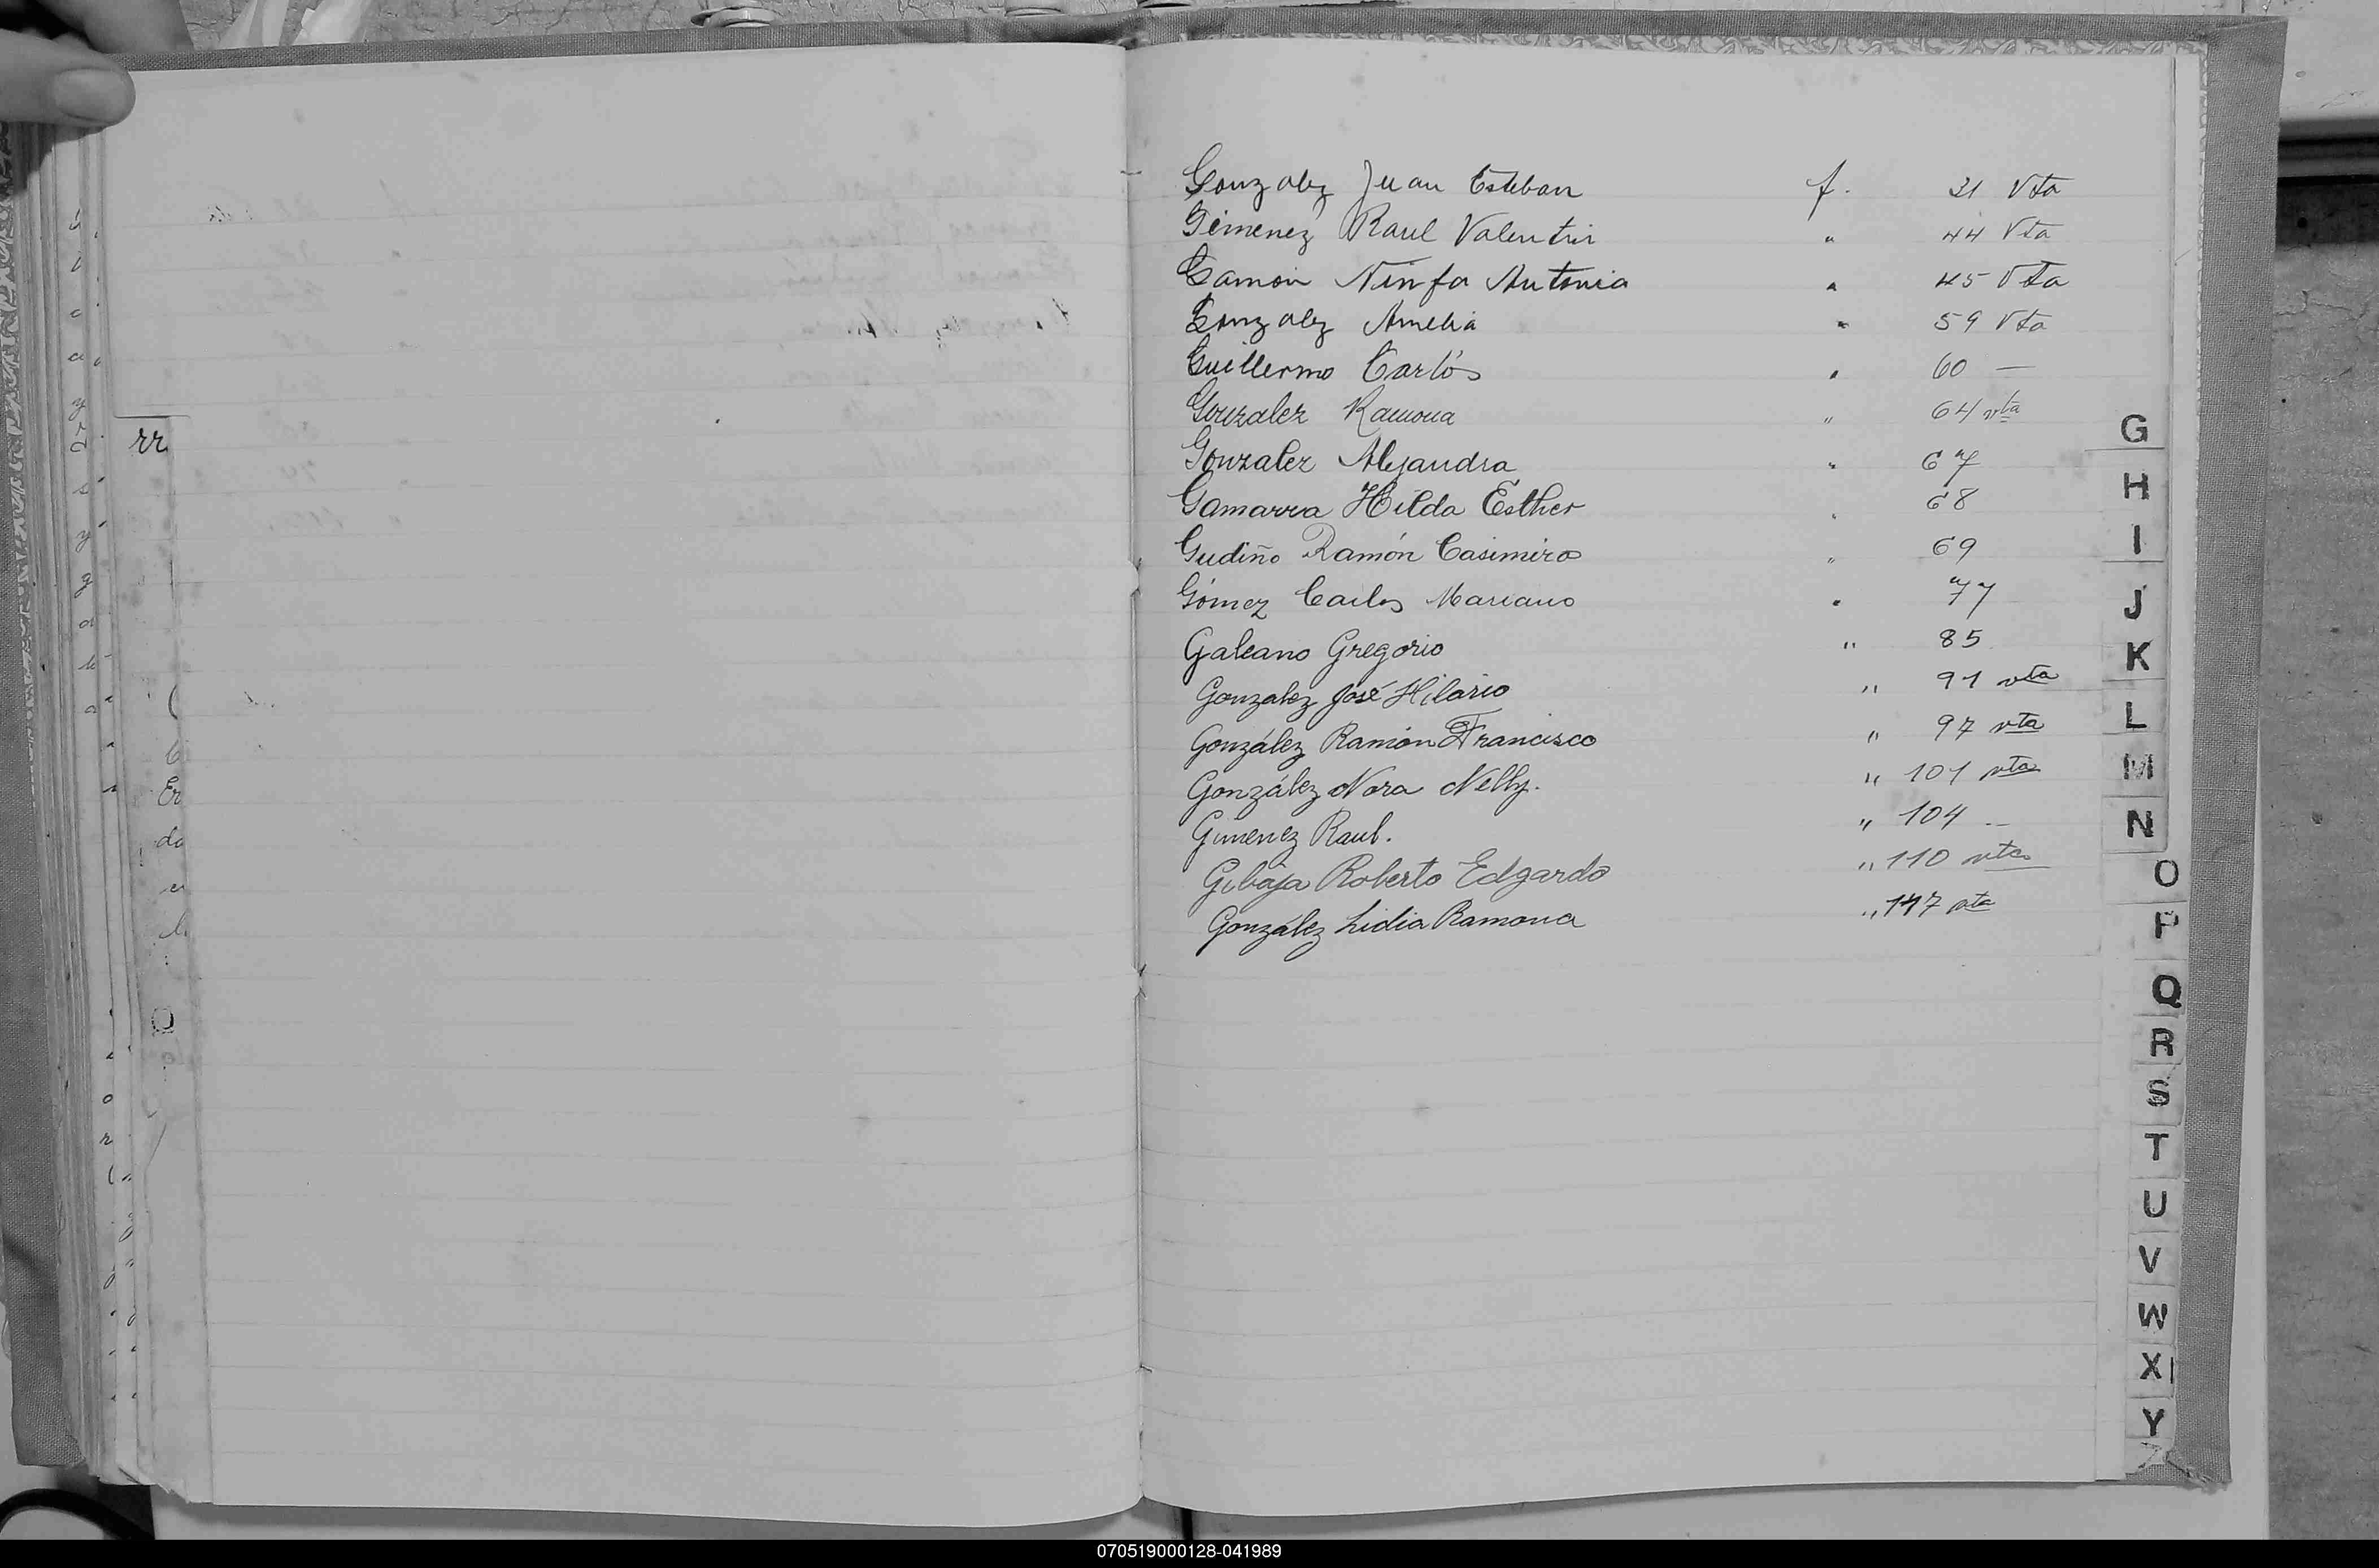 Gonzalez Juan Esteban f. 31 Vta
Gimenez Raul Valentin " 44 Vta
Gamón Ninfa Antonia " 45 Vta
Gonzalez Amelia " 59 Vta
Guillermo Carlos " 60 —
Gonzalez Ramona " 64 vta
Gonzalez Alejandra " 67
Gamarra Hilda Esther " 68
Gudiño Ramón Casimiro " 69
Gómez Carlos Mariano " 77
Galeano Gregorio " 85
Gonzalez José Hilario " 91 vta
González Ramón Francisco " 97 vta
González Nora Nelly. " 101 vta
Gimenez Raul. " 104 —
Gibaja Roberto Edgardo " 110 vta
González Lidia Ramona " 147 vta
G
H
I
J
K
L
M
N
O
P
Q
R
S
T
U
V
W
X
Y
Z
rr
070519000128-041989